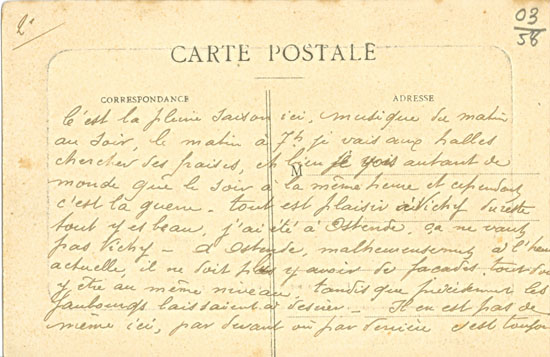 2°
03
58
CARTE POSTALE
CORRESPONDANCE
ADRESSE
M
C'est la pleine saison ici, musique du matin
au soir, le matin à 7h je vais aux halles
chercher des fraises, eh bien je vois autant de
monde que le soir à la même heure et cependant
c'est la guerre - tout est plaisir à Vichy du reste
tout y est beau, j'ai été à Ostende, ça ne vaut
pas Vichy - à Ostende, malheureusement à l'heure
actuelle, il ne doit pas y avoir de façades. tout doit
y être au même niveau, tandis que précédemment les
faubourgs laissaient à désirer - Il en est pas de
même ici, par devant ou par derrière c'est toujours